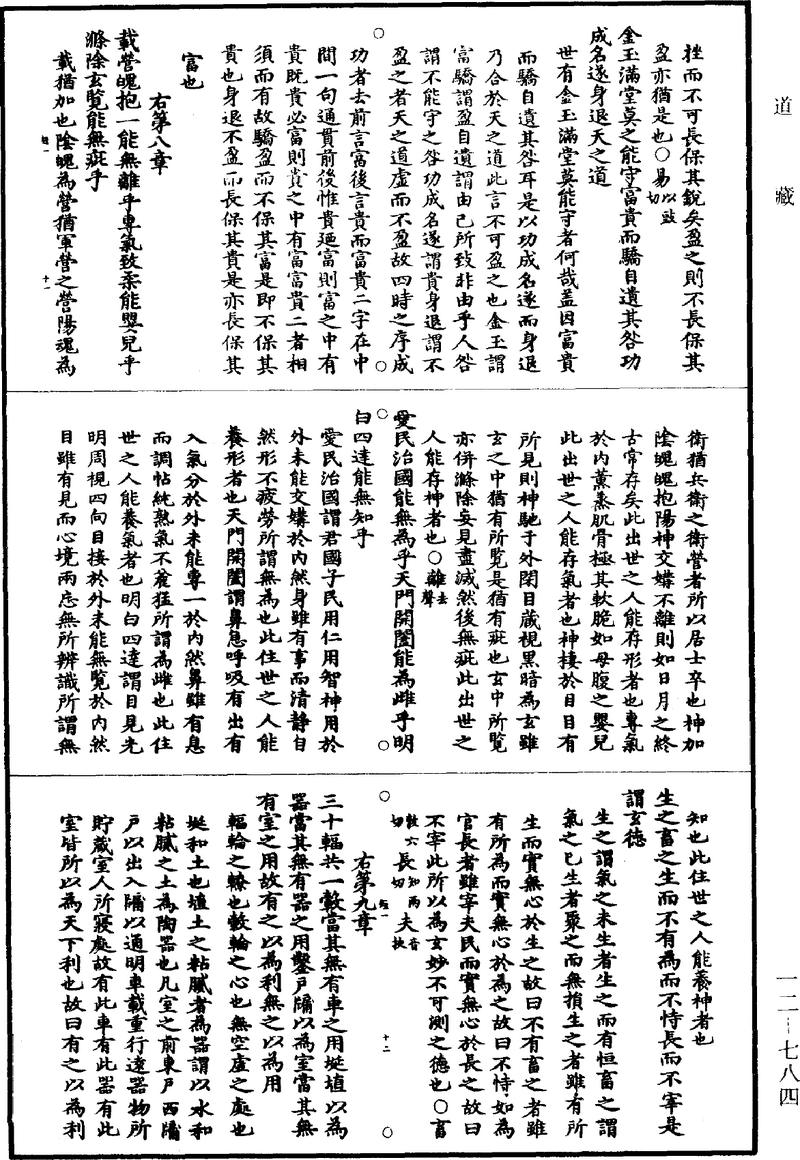 道藏
挫而不可長保其銳矣盈之則不長保其
盈亦猶是也○易以豉切
金玉滿堂莫之能守富貴而驕自遺其咎功
成名遂身退天之道
世有金玉滿堂莫能守者何哉蓋因富貴
而驕自遺其咎耳是以功成名遂而身退
乃合於天之道此言不可盈之也金玉謂
富驕謂盈自遺謂由己所致非由乎人咎
謂不能守之咎功成名遂謂貴身退謂不
盈之者天之道虛而不盈故四時之序成
功者去前言富後言貴而富貴二字在中
間一句通貫前後惟貴廼富則富之中有
貴既貴必富則貴之中有富富貴二者相
須而有故驕盈而不保其富是即不保其
貴也身退不盈而長保其貴是亦長保其
富也
右第八章
載營魄抱一能無離乎專氣致柔能嬰兒乎
滌除玄覽能無疵乎
載猶加也陰魄為營猶軍營之營陽魂為
衛猶兵衛之衛營者所以居士卒也神加
陰魄魄抱陽神交媾不離則如日月之終
古常存矣此出世之人能存形者也專氣
於內薰蒸肌骨極其軟脆如母腹之嬰兒
此出世之人能存氣者也神棲於目目有
所見則神馳于外閉目蔵視黑暗為玄雖
玄之中猶有所覧是猶有疵也玄中所覧
亦併滌除妄見盡滅然後無疵此出世之
人能存神者也○離去聲
愛民治國能無為乎天門開闔能為雌乎明
白四達能無知乎
愛民治國謂君國子民用仁用智神用於
外未能交媾於內然身雖有事而清靜自
然形不疲勞所謂無為也此住世之人能
養形者也天門開闔謂鼻息呼吸有出有
入氣分於外未能專一於內然鼻雖有息
而調帖純熟氣不麄猛所謂為雌也此住
世之人能養氣者也明白四達謂目見光
明周視四向目接於外未能無覽於內然
目雖有見而心境兩忘無所辨識所謂無
知也此住世之人能養神者也
生之畜之生而不有為而不恃長而不宰是
謂玄德
生之謂氣之未生者生之而有恒畜之謂
氣之已生者聚之而無損生之者雖有所
生而實無心於生之故曰不有畜之者雖
有所為而實無心於為之故曰不恃如為
官長者雖宰夫民而實無心於長之故曰
不宰此所以為玄妙不可測之德也○畜
敕六切長知兩切夫音扶
右第九章
三十輻共一轂當其無有車之用埏埴以為
器當其無有器之用鑿戶牖以為室當其無
有室之用故有之以為利無之以為用
輻輪之轑也轂輪之心也無空虛之處也
埏和土也埴土之粘膩者為器謂以水和
粘膩之土為陶器也凡室之前東戶西牖
戶以出入牖以通明車載重行遠器物所
貯蔵室人所寢處故有此車有此器有此
室皆所以為天下利也故曰有之以為利
一二—七八四